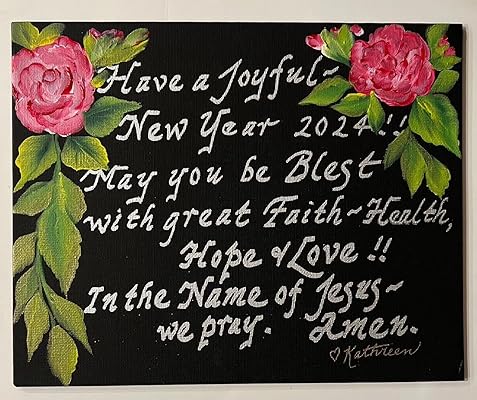 Have a Joyful~
New Year 2024!!
May you be Blest
with great Faith~Health,
Hope & Love !!
In the Name of Jesus~
we pray. Amen.
♡Kathreen